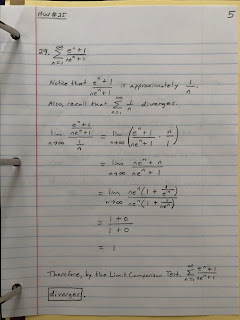 HW #25
5
29. ∞ Σ n=1 (e^n + 1)/(ne^n + 1)
Notice that (e^n + 1)/(ne^n + 1) is approximately 1/n.
Also, recall that ∞ Σ n=1 1/n diverges.
lim n→∞ ((e^n + 1)/(ne^n + 1))/(1/n) = lim n→∞ ((e^n + 1)/(ne^n + 1) · n/1)
= lim n→∞ (ne^n + n)/(ne^n + 1)
= lim n→∞ ne^n(1 + 1/e^n)/ne^n(1 + 1/ne^n)
= (1 + 0)/(1 + 0)
= 1
Therefore, by the Limit Comparison Test, ∞ Σ n=1 (e^n + 1)/(ne^n + 1)
diverges.